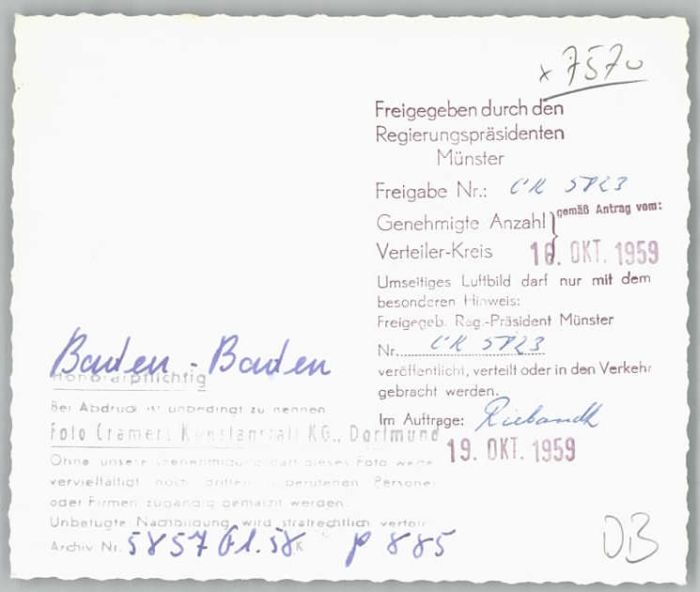 x 7570
Freigegeben durch den
Regierungspräsidenten
Münster
Freigabe Nr.: CR 5823
Genehmigte Anzahl } gemäß Antrag vom:
Verteiler-Kreis 10. OKT. 1959
Umseitiges Luftbild darf nur mit dem
besonderen Hinweis:
Freigegeb. Reg.-Präsident Münster
Nr. CR 5823
veröffentlicht, verteilt oder in den Verkehr
gebracht werden.
Im Auftrage:
19. OKT. 1959
Baden-Baden
Honorarpflichtig
Bei Abdruck ist unbedingt zu nennen
Foto Cramers Kunstanstalt KG., Dortmund
Ohne unsere Genehmigung darf dieses Foto weder
vervielfältigt noch dritten Personen
oder Firmen zugängig gemacht werden.
Unbefugte Nachbildung wird strafrechtlich verfolgt
Archiv Nr. 5857 K P 885
DB